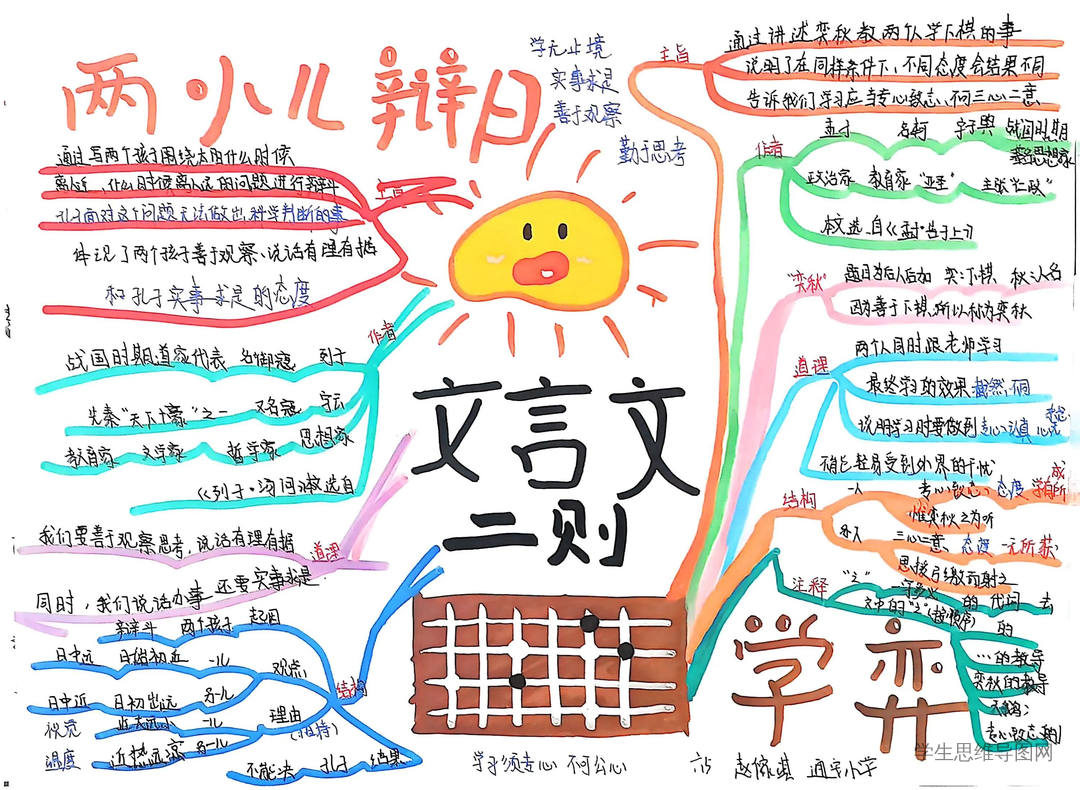 两小儿辩日
学无止境
实事求是
善于观察
勤于思考
主旨
通过写两个孩子围绕太阳什么时候
离人近,什么时候离人远的问题进行辩斗
孔子面对这个问题无法做出科学判断的事
件说了两个孩子善于观察、说话有理有据
和孔子实事求是的态度
作者
战国时期道家代表 名御寇 列子
先秦“天下十豪”之一 又名寇 字云
教育家 文学家 哲学家 思想家
《列子·汤问》校选自
道理
我们要善于观察思考,说话有理有据
同时,我们说话办事还要实事求是
结构
辩斗 两个孩子 起因
日中远 日始初近 一儿 观点
日中近 日初出远 另一儿
视觉 近大远小 一儿 理由
温度 近热远凉 另一儿
不能决 孔子 结果
文言文
二则
学弈
主旨
通过讲述奕秋教两人学下棋的事
说明了在同样条件下、不同态度会结果不同
告诉我们学习应当专心致志、不可三心二意
作者
孟子 名轲 字子舆 战国时期
思想家
政治家 教育家 “亚圣” 主张“仁政”
校选自《孟子·告子上》
“奕秋”
所以称为奕秋
道理
两个人同时跟老师学习
最终学习的效果截然不同
说明学习时要做到专心认真
不能轻易受到外界的干扰
结构
一人 专心致志、态度 学有所成
惟奕秋之为听
另一人 三心二意、态度 一无所获
思援弓缴而射之
注释
“之” 的 代词 去
文中的“之” 的
…的教导
奕秋的教导
学子须专心 不可分心
学生思维导图网